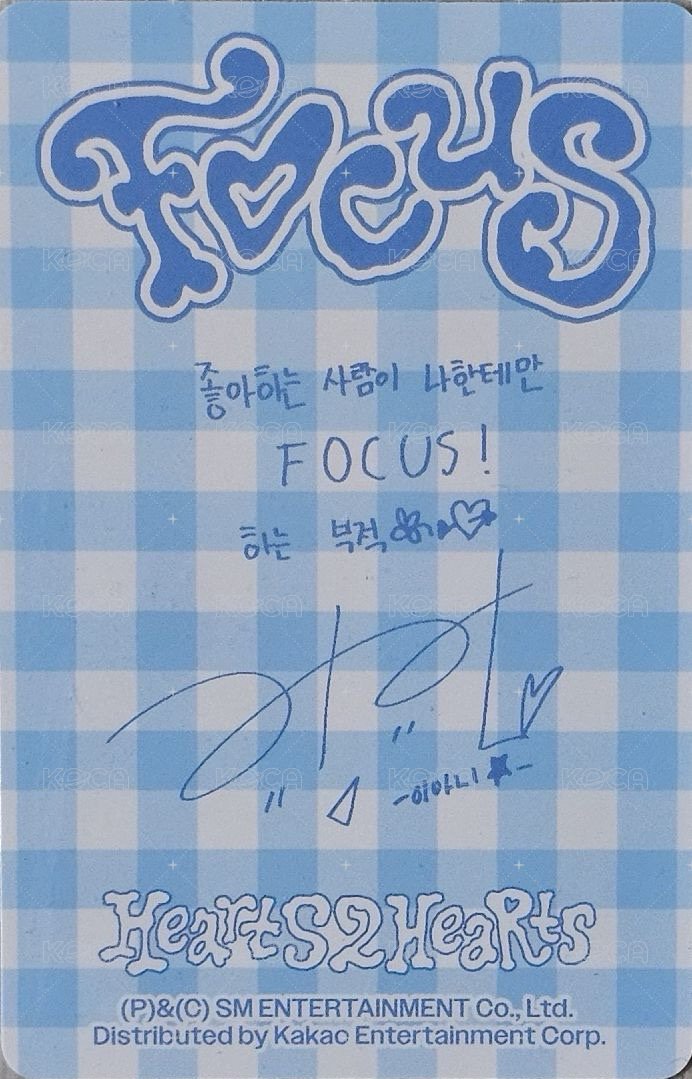 FOCUS
좋아하는 사람이 나한테만
FOCUS!
하는 부적
-이아니★-
Hearts2Hearts
(P)&(C) SM ENTERTAINMENT Co., Ltd.
Distributed by Kakao Entertainment Corp.